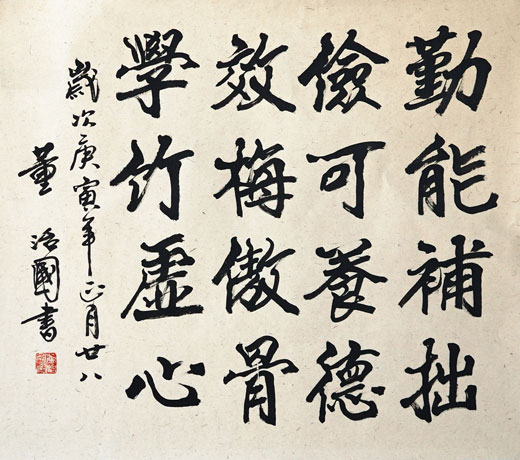 勤能補拙
儉可養德
效梅傲骨
學竹虛心
歲次庚寅年正月廿八
董治國書